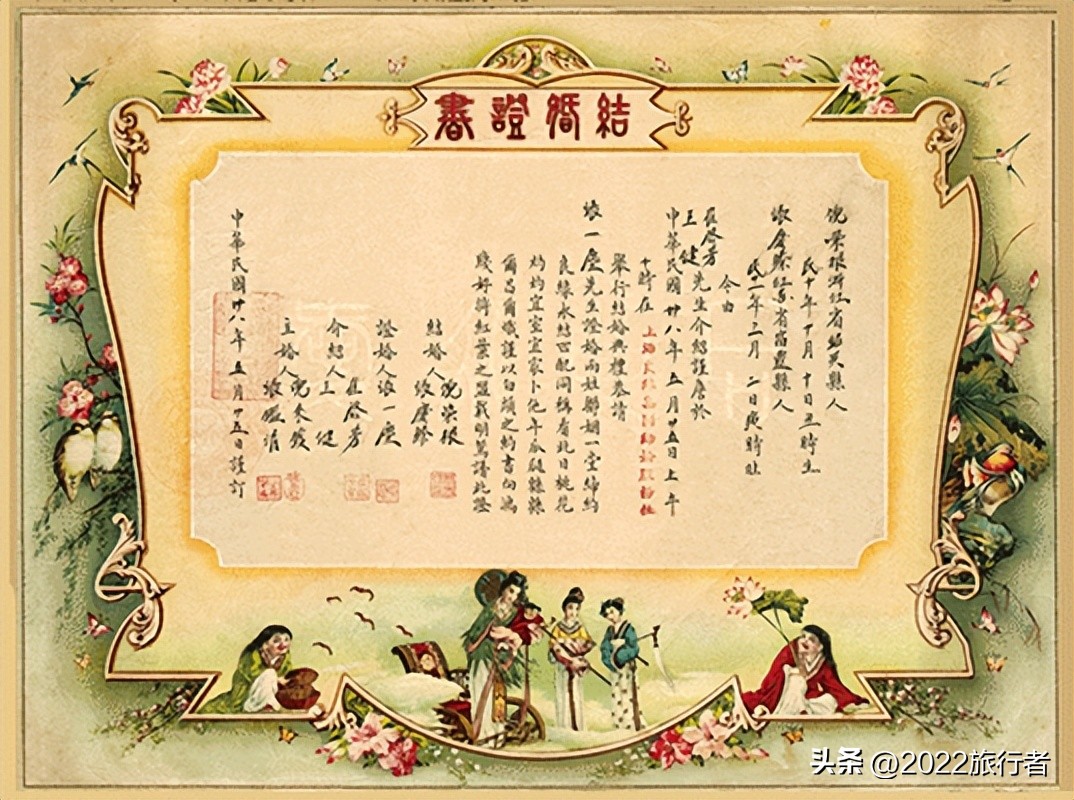 結婚證書
倪榮根浙江省紹興縣人
民十年十月十日丑時生
慶
江省
縣人
民十一年二月二日戌時生
今由
崔啓芳
王健
先生介紹謹詹於
中華民國卅八年五月廿五日上午
十時在
舉行結婚典禮恭請
張一塵先生證婚兩姓聯姻一堂締約
良緣永結匹配同稱看此日桃花
灼灼宜室宜家卜他年瓜瓞緜緜
爾昌爾熾謹以白頭之約書向鴻
牋好將紅葉之盟載明鴛譜此證
結婚人
倪榮根
慶
證婚人張一塵
介紹人
崔啓芳
王健
主婚人
倪
中華民國卅八年五月廿五日謹訂
头条 @2022旅行者